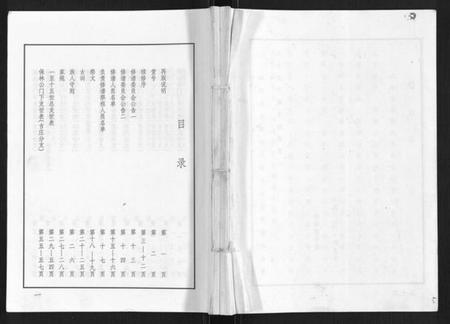 目录
再版说明 第一页
堂号 第二页
续修序 第三—十二页
修谱委员会公告一 第十三页
修谱委员会公告二 第十四页
修谱人员名单 第十五—十六页
负责修谱祭祖人员名单 第十七页
祭文 第十八—十九页
古训 第二十—二五页
族人守则 第二六页
家规 第二七—二八页
一至十五世总支世表 第二九—五四页
保林公门下支世表(古庄分支) 第五五—五七页